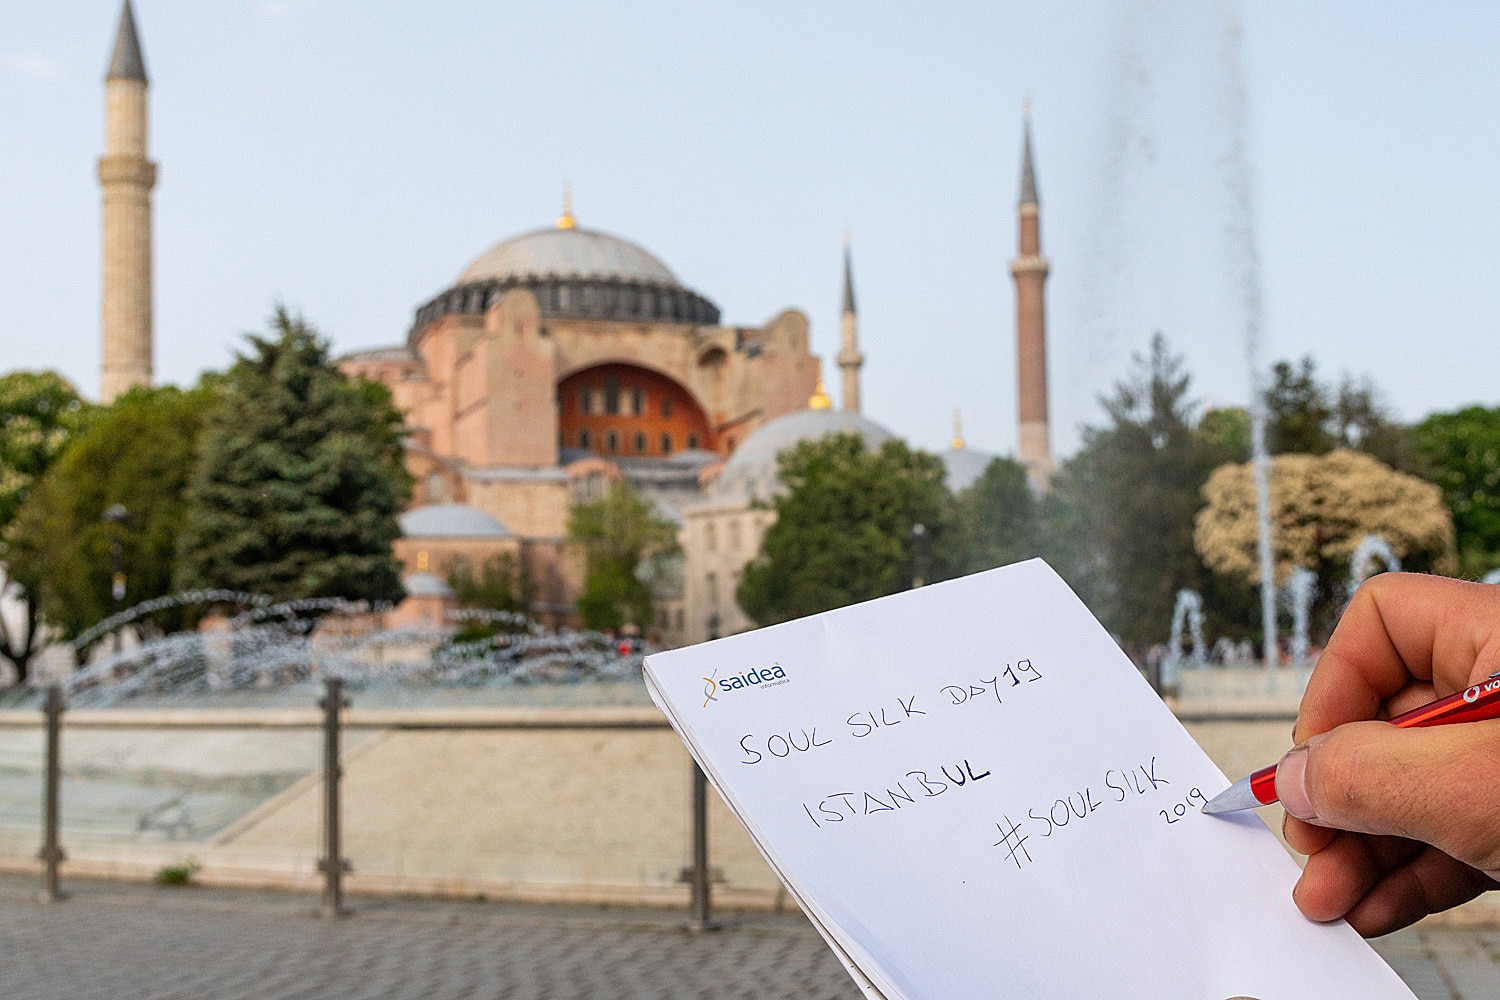 saidea
informatica
SOUL SILK DAY 19
ISTANBUL
#SOUL SILK
2019
VO